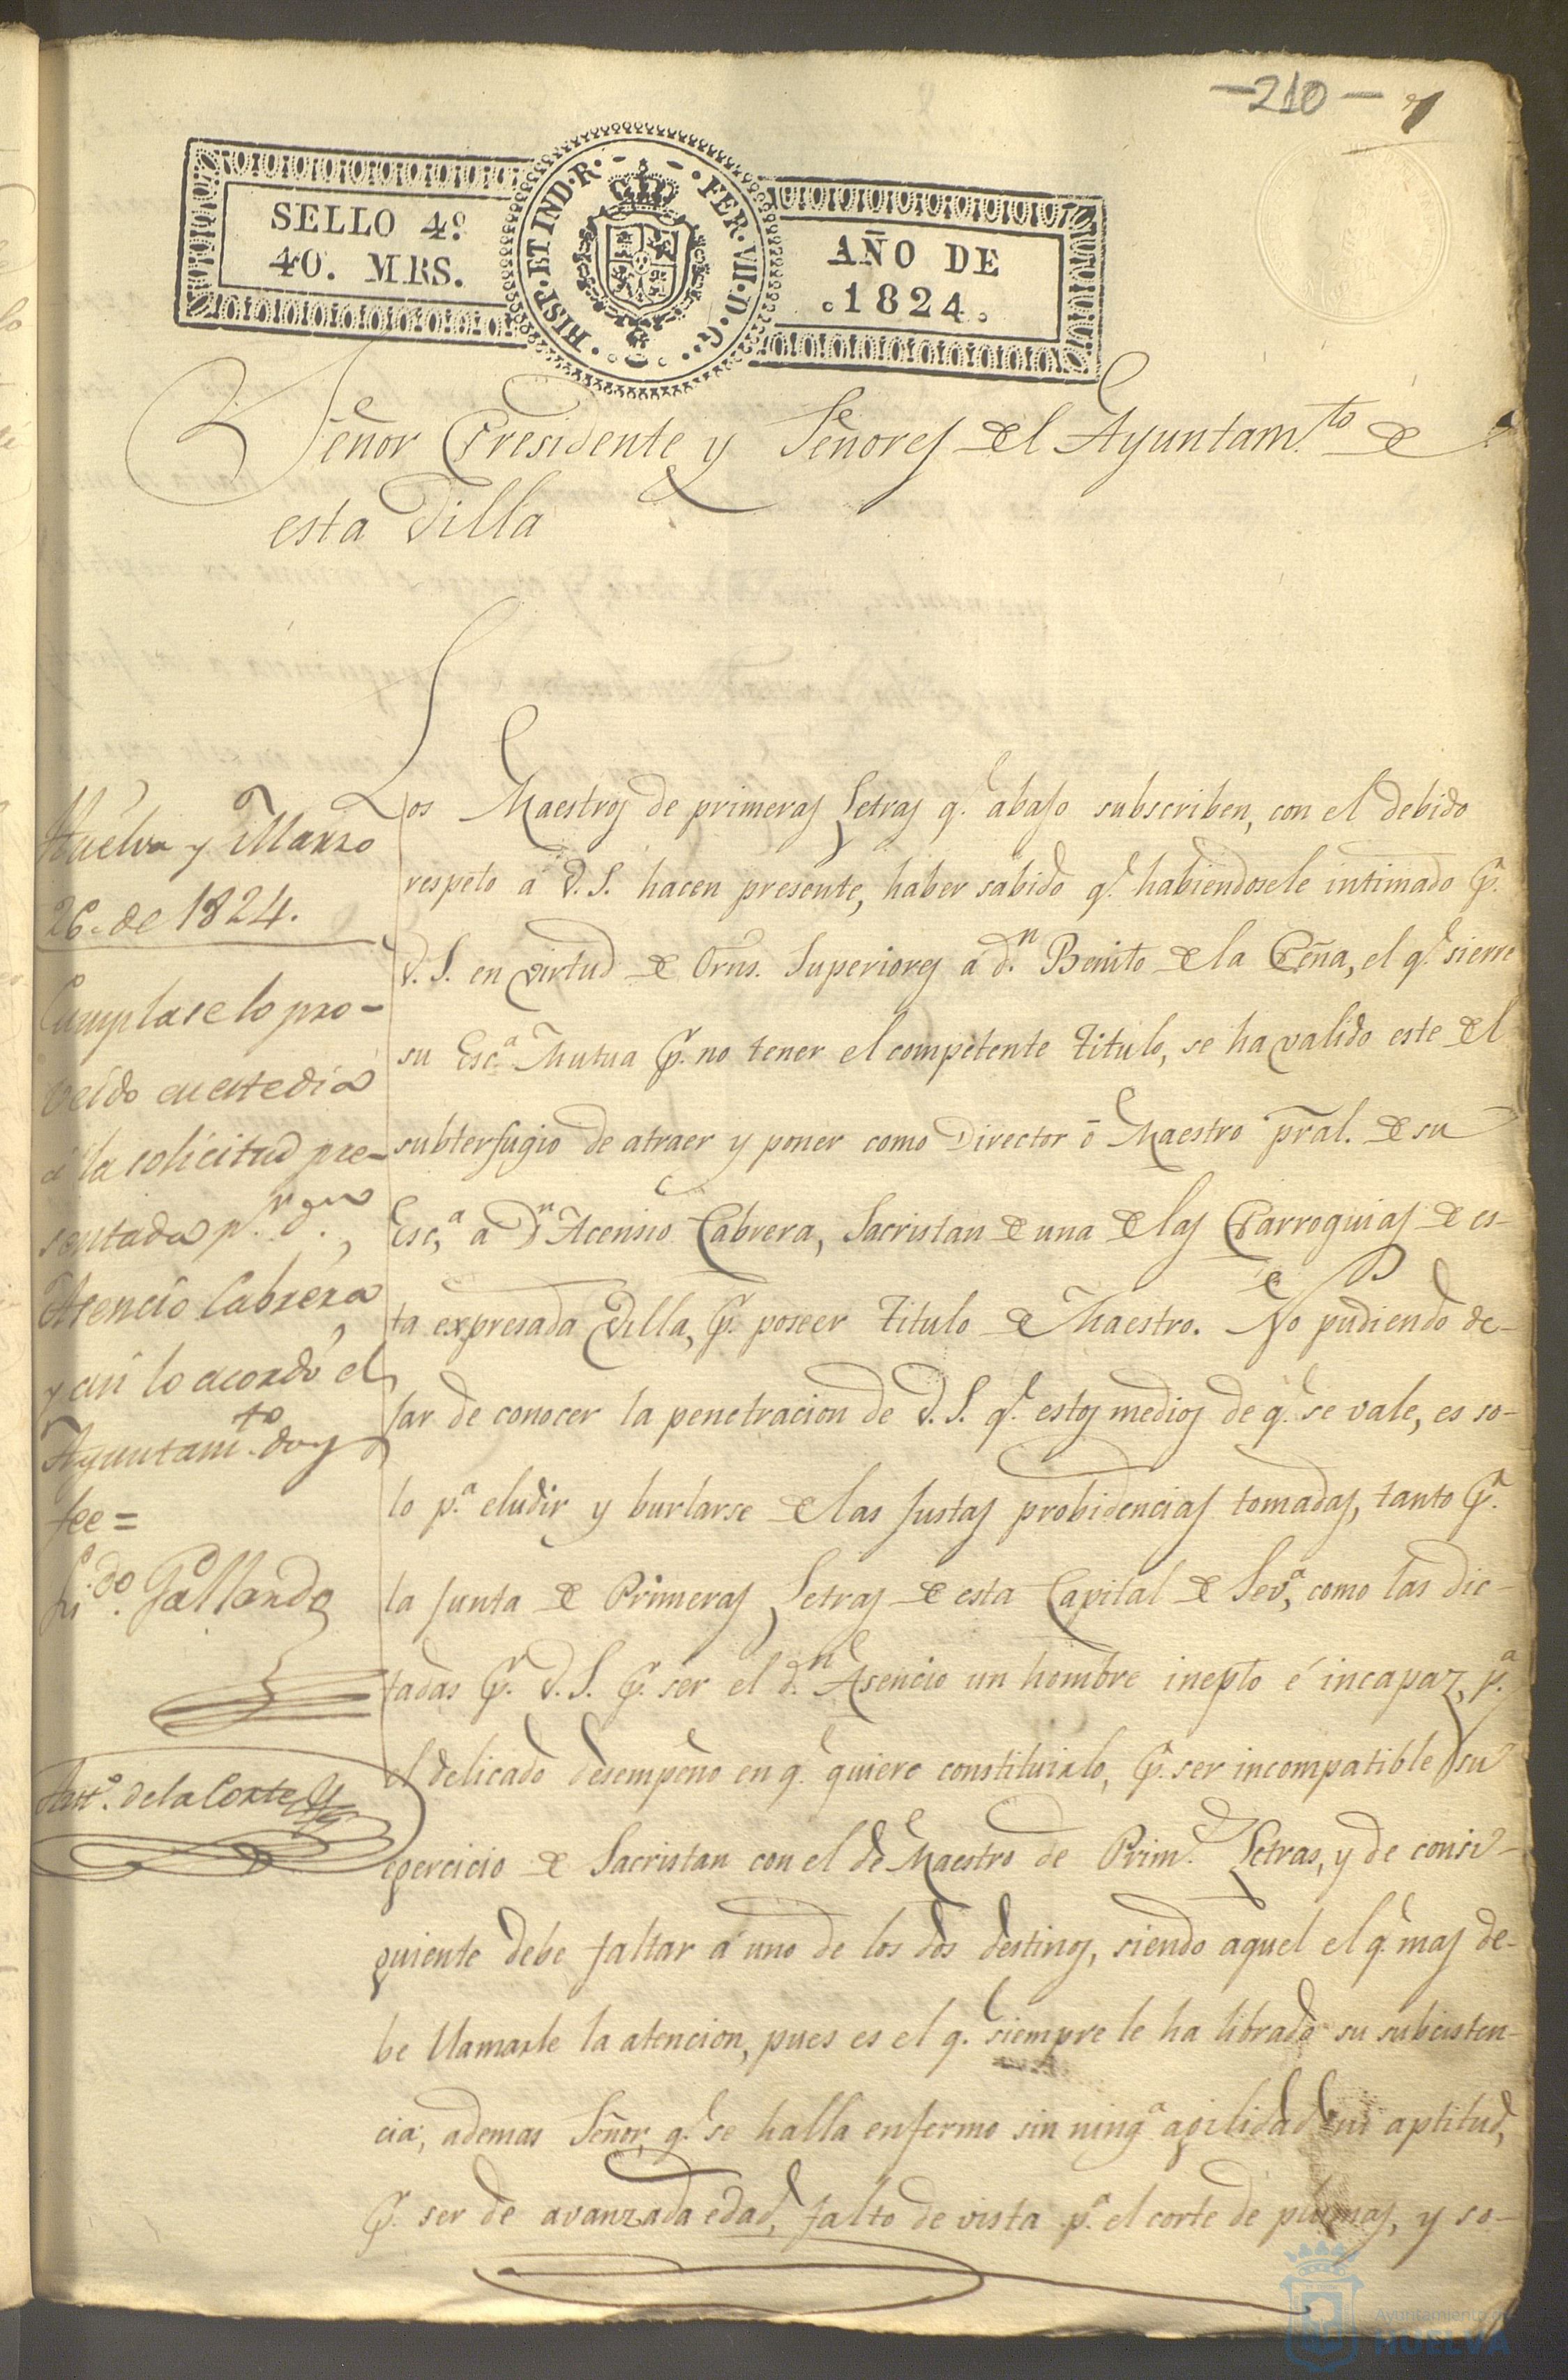 -210-
SELLO 4º
40. MRS.
HISP. ET IND. R. FER. VII. D. G.
AÑO DE
1824.
Señor Presidente y Señores del Ayuntam.to de
esta Villa
Huelva y Marzo
26. de 1824.
Cumplase lo pro-
veido en este dia
á la solicitud pre-
sentada p.r d.n
Atencio Cabrera
y asi lo acordó el
Ayuntam.to doy
fee=
L.do Gallardo
Ant.o de la Corte
Los Maestros de primeras Letras q.e abajo subscriben, con el debido
respeto á V.S. hacen presente, haber sabido q.e habiendosele intimado p.r
V.S. en virtud de Orns. Superiores á d.n Benito de la Peña, el q.e sierre
su Esc.a Mutua p.r no tener el competente Titulo, se ha valido este del
subterfugio de atraer y poner como Director ó Maestro pral. de su
Esc.a, a D.n Acensio Cabrera, Sacristan de una de las Parroquias de es-
ta expresada Villa, p.r poseer Titulo de Maestro. No pudiendo de-
jar de conocer la penetracion de V.S. q.e estos medios de q.e se vale, es so-
lo p.a eludir y burlarse de las justas probidencias tomadas, tanto p.r
la Junta de Primeras Letras de esta Capital de Sev.a, como las dic-
tadas p.r V.S. p.r ser el d.n Asencio un hombre inepto é incapaz, p.a
el delicado desempeño en q.e quiere constituirlo, p.r ser incompatible su
egercicio de Sacristan con el de Maestro de Prim.s Letras, y de consi-
guiente debe faltar á uno de los dos destinos, siendo aquel el q.e mas de-
be llamarle la atencion, pues es el q.e siempre le ha librado su subcisten-
cia; ademas Señor, q.e se halla enfermo sin ning.a agilidad ni aptitud,
p.r ser de avanzada edad, falto de vista p.a el corte de plumas, y so-
Ayuntamiento de
HUELVA